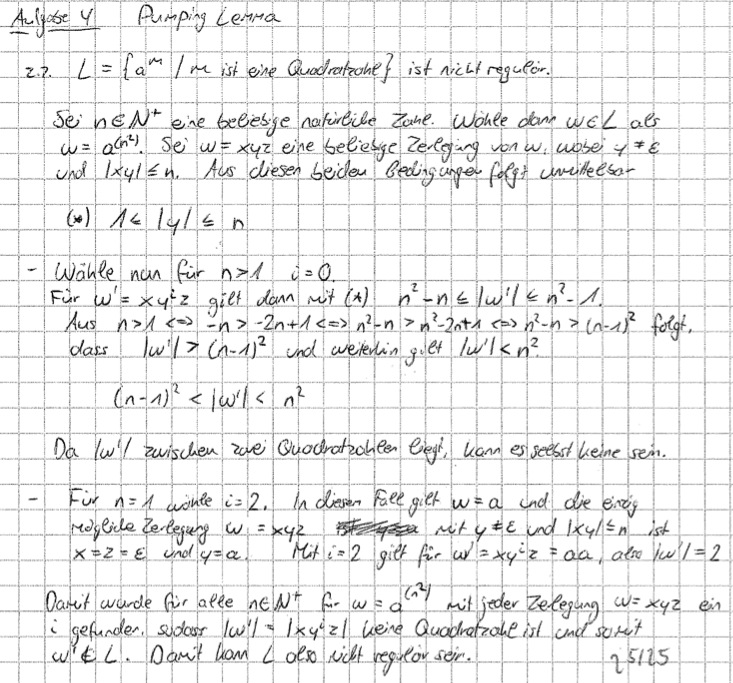 Aufgabe 4 Pumping Lemma
z.z. L = {a^m / m ist eine Quadratzahl} ist nicht regulär.
Sei n∈N⁺ eine beliebige natürliche Zahl. Wähle dann w∈L als
w = a^(n²). Sei w = xyz eine beliebige Zerlegung von w, wobei y ≠ ε
und |xy| ≤ n. Aus diesen beiden Bedingungen folgt unmittelbar
(*) 1 ≤ |y| ≤ n
- Wähle nun für n>1 i=0.
Für w' = xy^i z gilt dann mit (*) n²-n ≤ |w'| ≤ n²-1.
Aus n>1 <=> -n > -2n+1 <=> n²-n > n²-2n+1 <=> n²-n > (n-1)² folgt,
dass |w'| > (n-1)² und weiterhin gilt |w'| < n².
(n-1)² < |w'| < n²
Da |w'| zwischen zwei Quadratzahlen liegt, kann es selbst keine sein.
- Für n=1 wähle i=2. In diesem Fall gilt w=a und die einzig
mögliche Zerlegung w = xyz mit y≠ε und |xy|≤n ist
x=z=ε und y=a. Mit i=2 gilt für w' = xy^i z = aa, also |w'| = 2
Damit wurde für alle n∈N⁺ für w = a^(n²) mit jeder Zerlegung w=xyz ein
i gefunden, sodass |w'| = |xy^i z| keine Quadratzahl ist und somit
w' ∉ L. Damit kann L also nicht regulär sein.